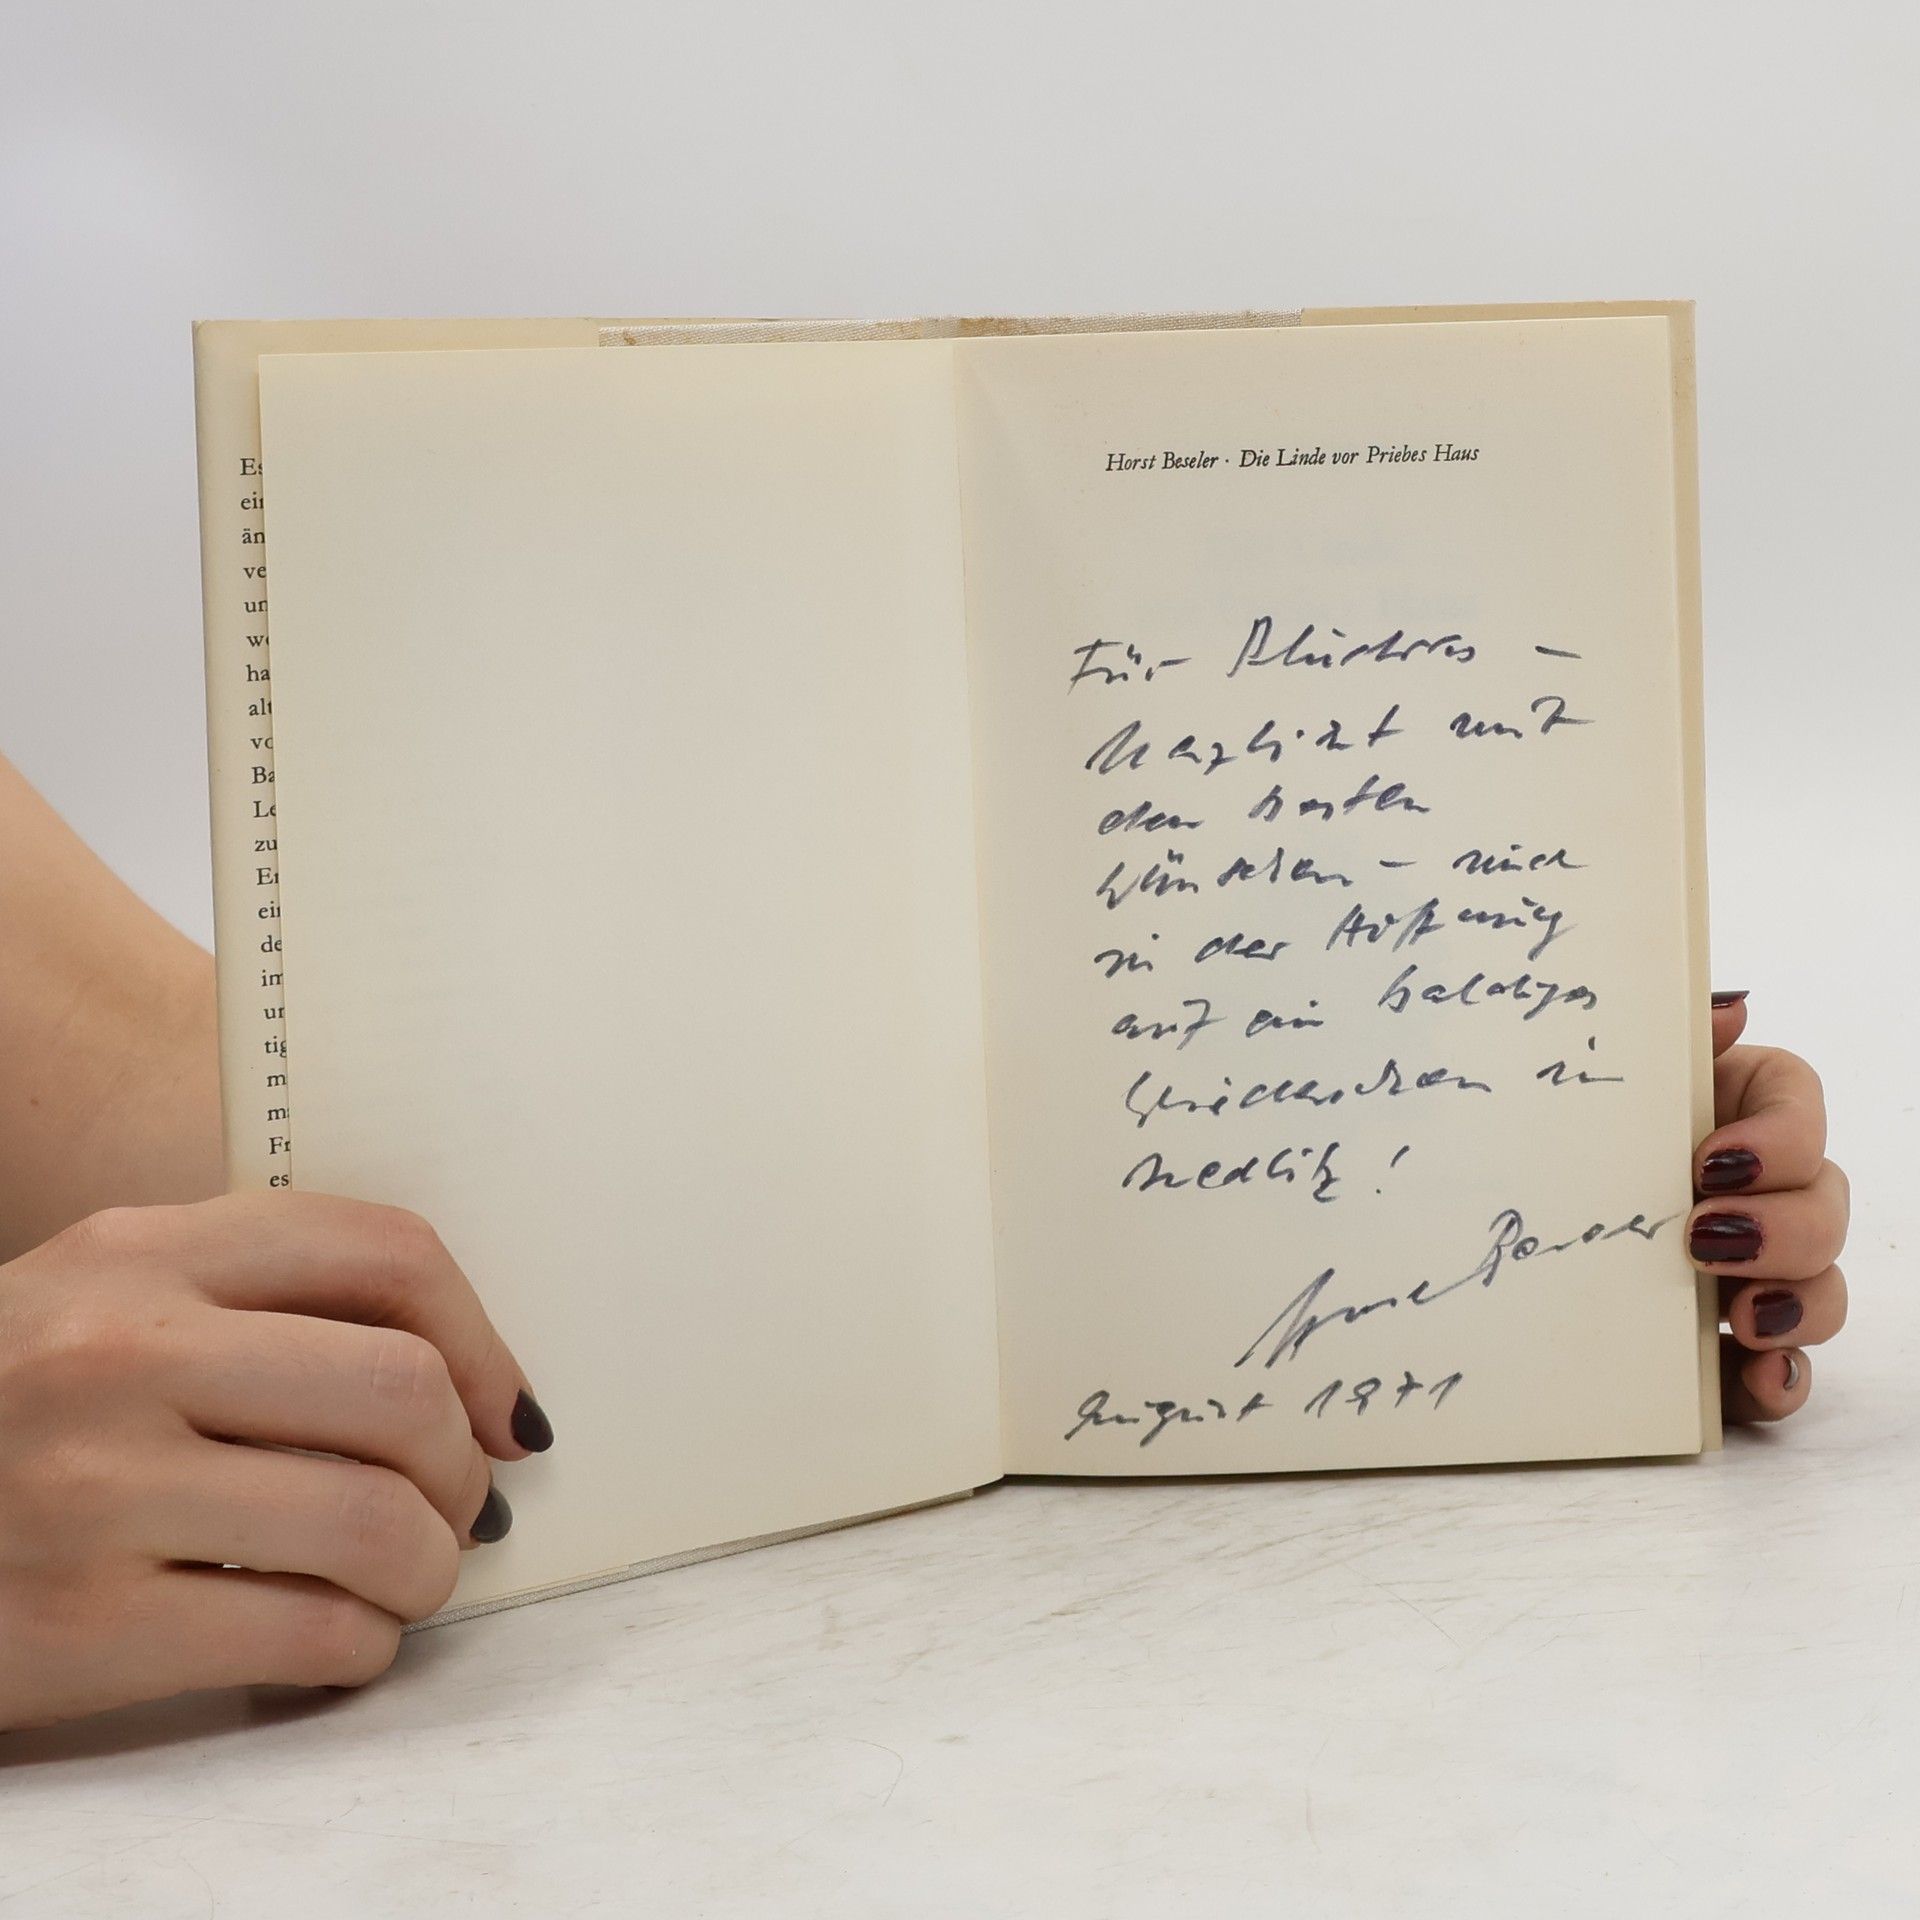 Es
ein
än
ve
un
we
ha
alt
vo
Ba
Le
zu
Er
ein
de
im
un
tig
m
ma
Fr
es
Horst Beseler · Die Linde vor Priebes Haus
Für –
herzlichst mit
den besten
Wünschen – und
in der Hoffnung
auf ein baldiges
Wiedersehen in
Nedlitz!
Horst Beseler
August 1971